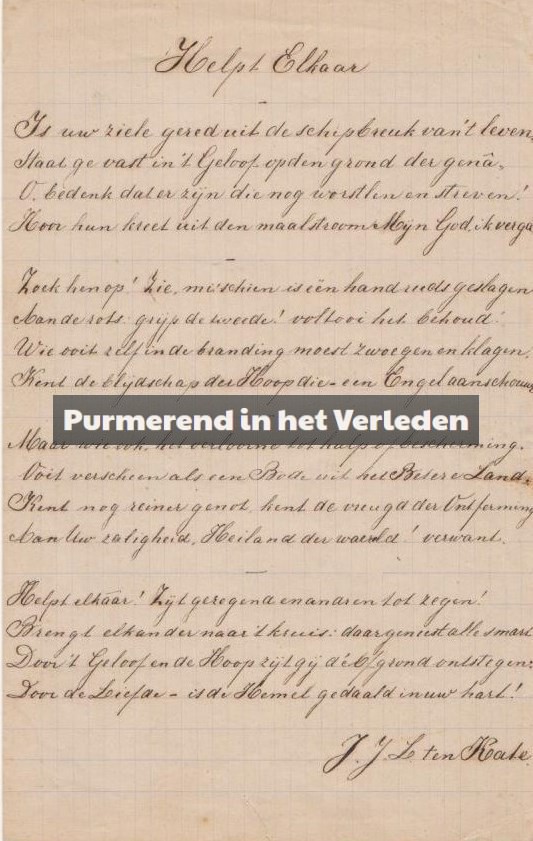 Helpt Elkaar
Is uw ziele gered uit de schipbreuk van't leven,
Staat ge vast in't Geloof op den grond der genâ,
O, bedenk dat er zijn die nog worstlen en streven!
Hoor hun kreet uit den maalstroom Mijn God, ik verga
Zoek hen op! Zie, misschien is één hand reeds geslagen
Aan de rots: grijp de tweede! voltooi het behoud!
Wie ooit zelf in de branding moest zwoegen en klagen,
Kent de blijdschap der Hoop die een Engel aanschouwt
Purmerend in het Verleden
Maar wie ook, het verloorne tot hulp of bescherming,
Ooit verscheen als een Bode uit het Betere Land,
Kent nog reiner genot, kent de vreugd der Ontferming
Aan Uw zaligheid, Heiland der waereld! verwant.
Helpt elkaâr! Zijt gezegend en andren tot zegen!
Brengt elkander naar 't kruis: daar geniest alle smart
Door 't Geloof en de Hoop zijt gij d'Afgrond ontstegen:
Door de Liefde - is de Hemel gedaald in uw hart!
J. J. L ten Kate.